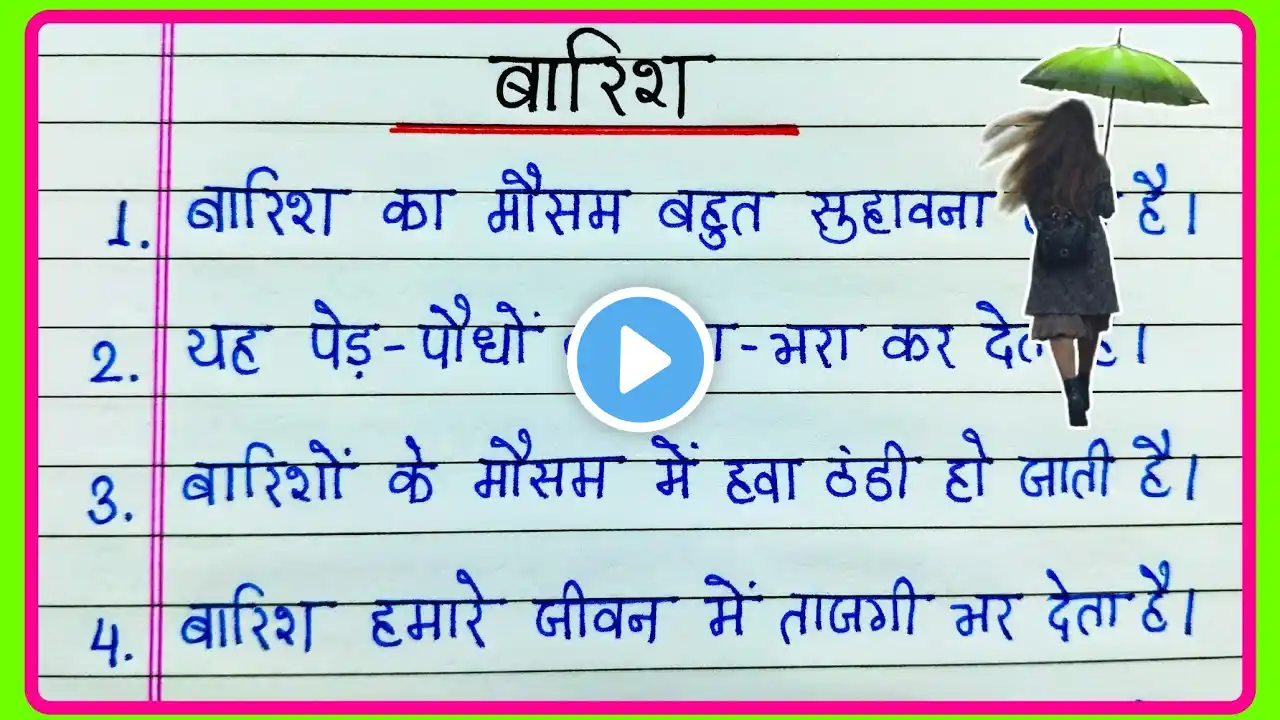 बारिश
1. बारिश का मौसम बहुत सुहावना है।
2. यह पेड़-पौधों -भरा कर
3. बारिशों के मौसम में हवा ठंडी हो जाती है।
4. बारिश हमारे जीवन में ताजगी भर देता है।